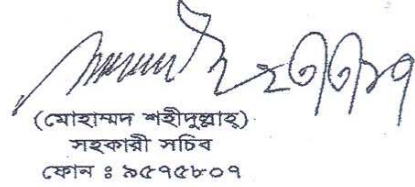 (মোহাম্মদ শহীদুল্লাহ)
সহকারী সচিব
ফোন ঃ ৯৫৭৫৮০৭